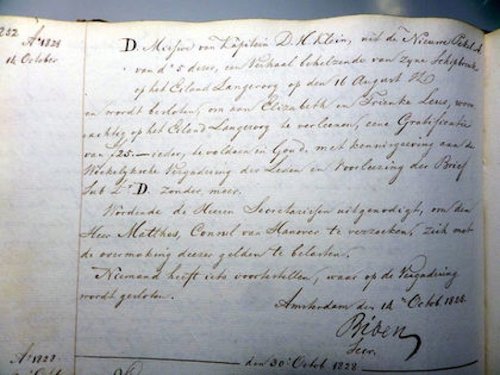 252
A° 1828
14 October
D. Missive van Kapitein D. H. Klein, uit de Nieuwe Pekel A
van d° 5 dezer, een Verhaal behelzende van Zyne Schipbreuk
op het Eiland Langeroog op den 16 August
en wordt besloten, om aan Elizabeth en Frienke Leus, woon
achtig op het Eiland Langeroog te verleenen, eene Gratificatie
van ƒ25.— ieder, te voldoen in Goud, met kennisgeving aan de
Wekelyksche Vergadering der Leden en Voorlezing der Brief
Sub L.ª D. zonder meer.
Wordende de Heeren Secretarissen uitgenodigt, om den
Heer Matthes, Consul van Hanover te verzoeken, zich met
de overmaking dezer gelden te belasten.
Niemand heeft iets voortestellen, waar op de Vergadering
wordt gesloten.
Amsterdam den 14.ⁿ Octob 1828.
Secr.
A° 1828.
den 30.ⁿ Octob 1828